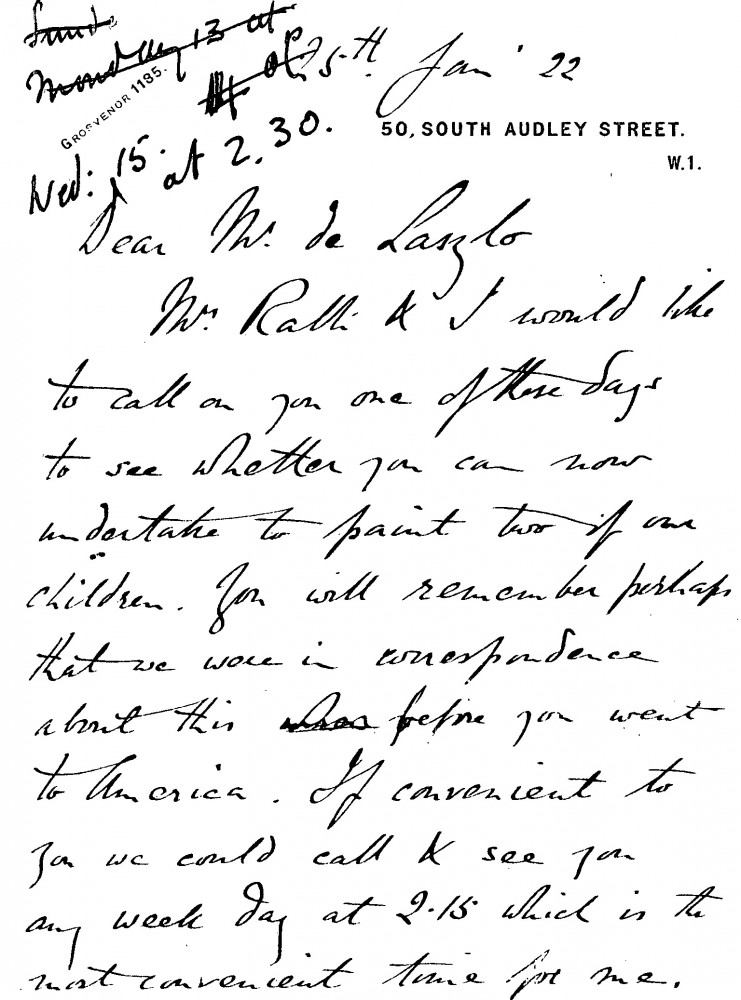 Monday 13 at
GROSVENOR 1185.
25th Jan' 22
50, SOUTH AUDLEY STREET.
W.1.
Wed: 15. at 2.30.
Dear Mr. de Laszlo
Mrs Ralli & I would like
to call on you one of these days
to see whether you can now
undertake to paint two of our
children. You will remember perhaps
that we were in correspondence
about this when before you went
to America. If convenient to
you we could call & see you
any week day at 2.15 which is the
most convenient time for me.